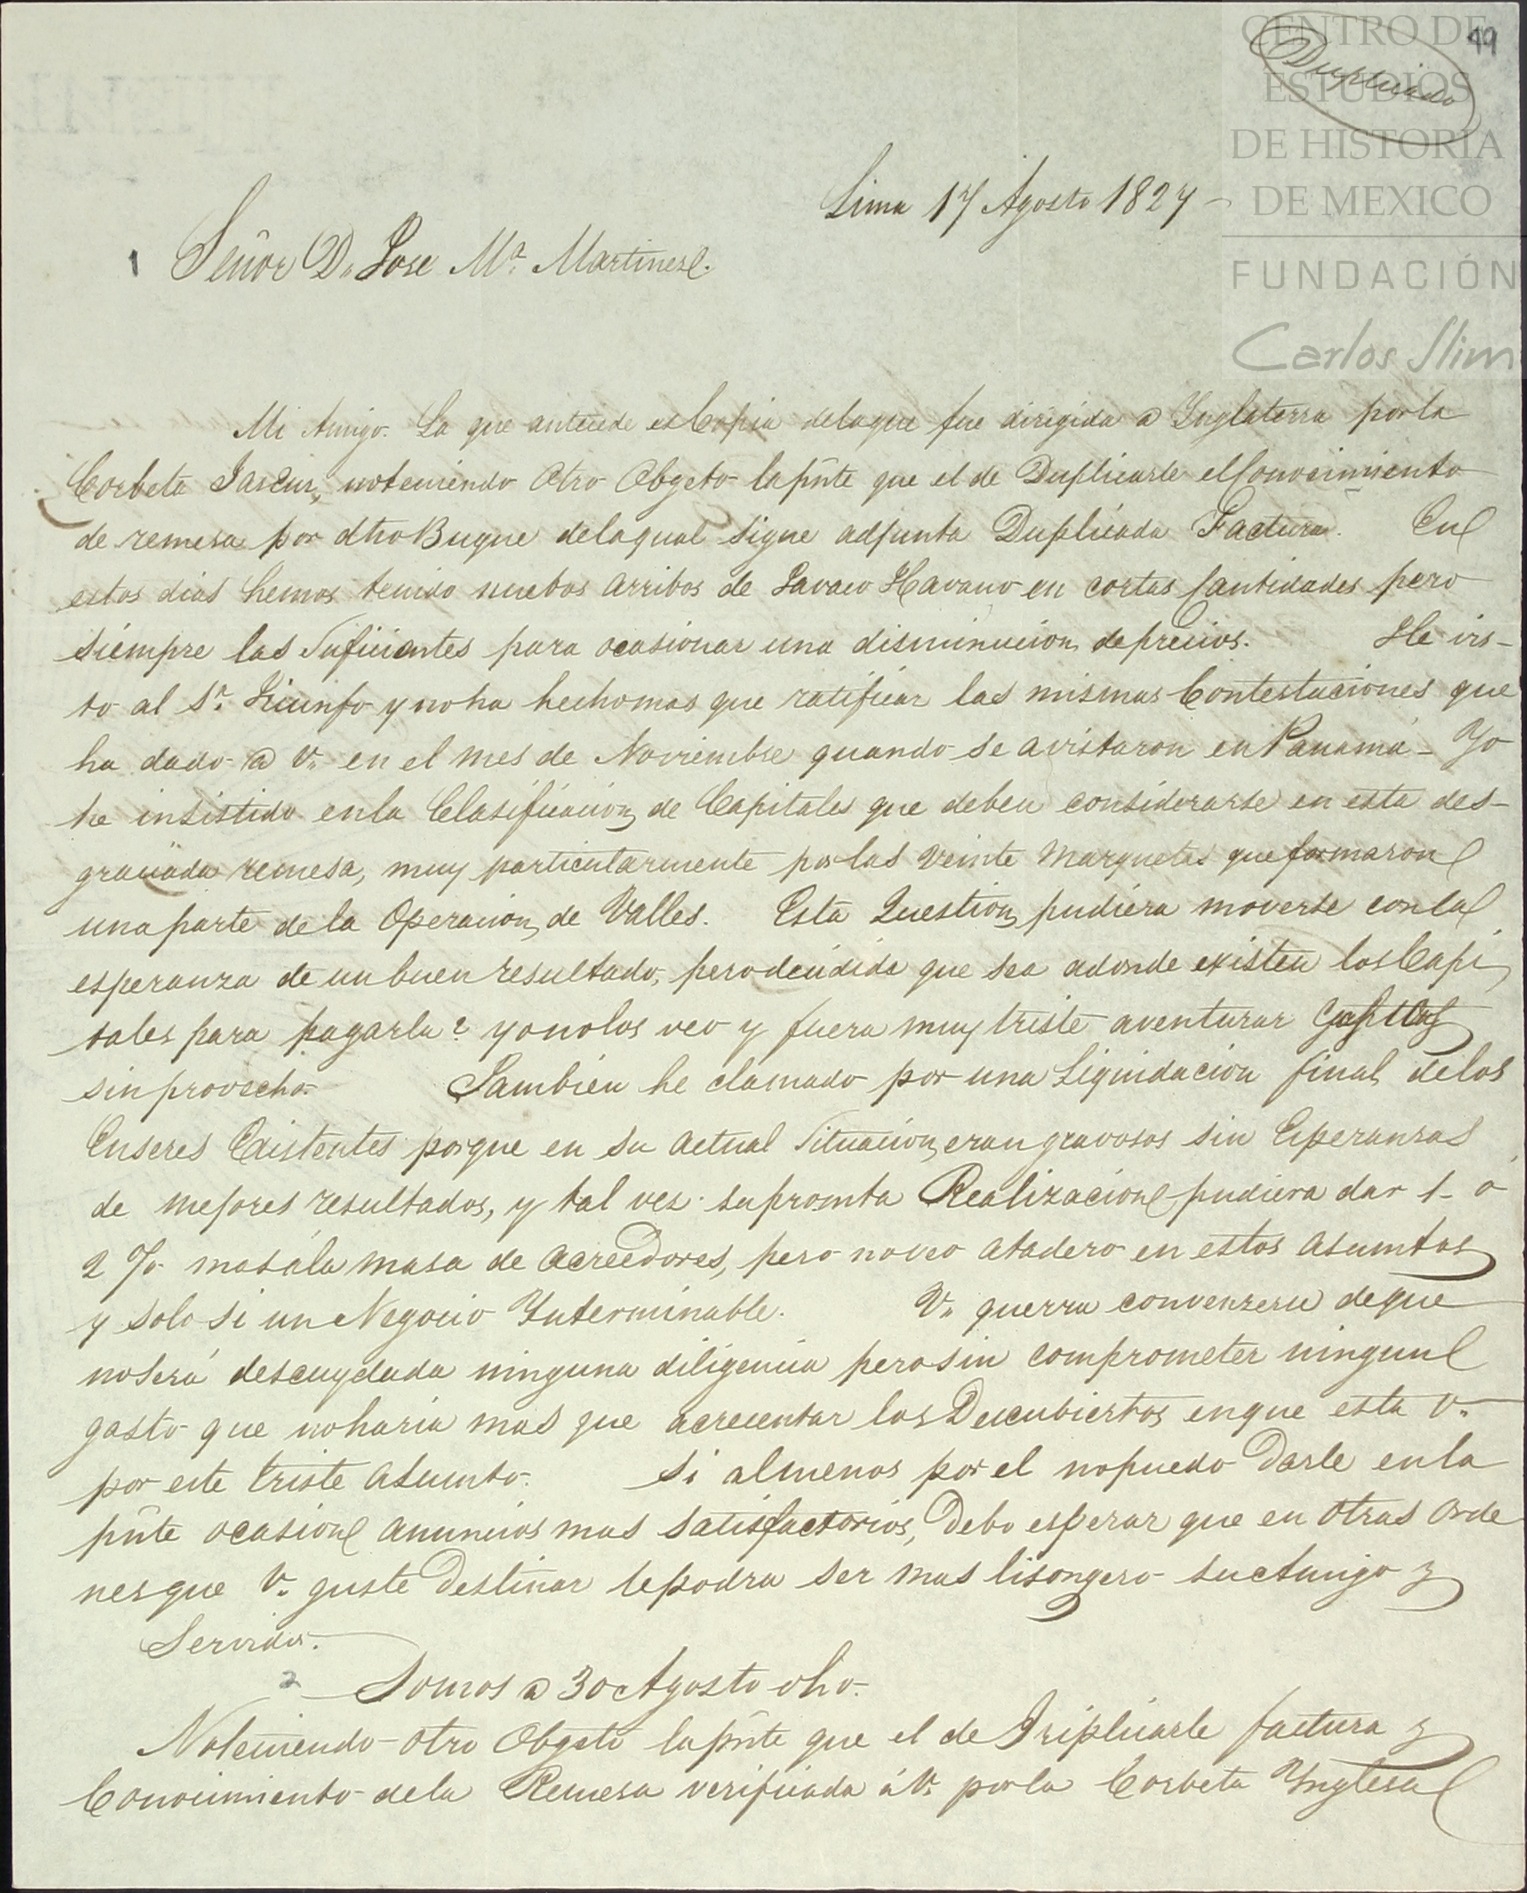 CENTRO DE
ESTUDIOS
DE HISTORIA
DE MEXICO
FUNDACIÓN
Carlos Slim
99
Duplicado
Lima 17 Agosto 1827
1 Señor Dn. Jose Ma. Martinez.
Mi Amigo. La que antecede es Copia delaque fue dirigida a Ynglaterra porla
Corbeta noteniendo Otro Obgeto la pñte que el de Duplicarle el Conocimiento
de remesa por dho Buque delaqual sigue adjunta Duplicada Factura. En
estos dias hemos tenido nuebos arribos de Havano en cortas Cantidades pero
siempre las Suficientes para ocasionar una disminucion de precios. He vis-
to al Sr. y no ha hecho mas que ratificar las mismas Contestaciones que
ha dado a V. en el mes de Noviembre quando se avistaron en Panamá - Yo
he insistido enla Clasificacion de Capitales que deben considerarse en esta des-
graciada remesa, muy particularmente por las veinte Marquetas que formaron
una parte de la Operacion de Valles. Esta Question pudiera moverse con la
esperanza de un buen resultado, pero decidida que sea adonde existen los Capi
tales para pagarla? yo no los veo y fuera muy triste aventurar Gastos
sin provecho. Tambien he clamado por una Liquidacion final de los
Enseres Existentes porque en su actual Situacion eran gravosos sin Esperanzas
de mejores resultados, y tal vez su promta Realizacion pudiera dar 1 ó
2 % mas á la masa de Acreedores, pero no veo atadero en estos asumtos
y solo si un Negocio Ynterminable. V. querra convenzerse de que
no será descuydada ninguna diligencia pero sin comprometer ningun
gasto que no haria mas que acrecentar los Descubiertos en que esta V.
por este triste asumto. Si almenos por el no puedo Darle enla
pñte ocasion anuncios mas satisfactorios, Debo esperar que en otras orde
nes que V. guste Destinar le podra ser mas lisongero su Amigo y
Servidor.
2 Somos a 30 Agosto dho.
No teniendo otro Obgeto la pñte que el de Triplicarle factura y
Conocimiento dela Remesa verificada á V. porla Corbeta Ynglesa